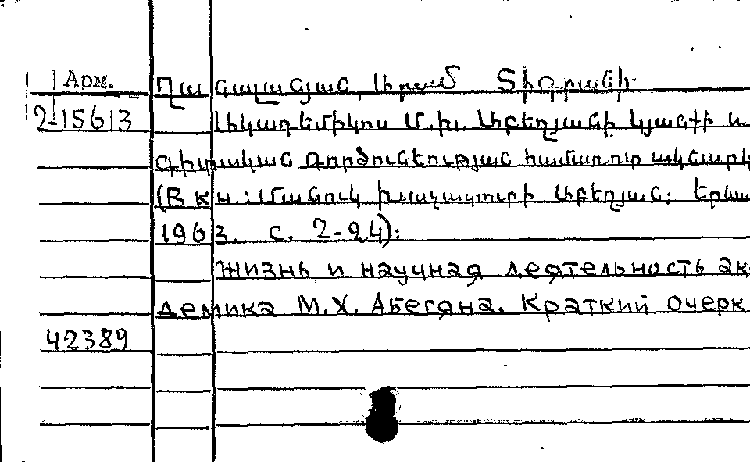 Арм. Ղանալանյան, Արամ Տիգրանի
2-15613 Ակադեմիկոս Մ. Խ. Աբեղյանի կյանքի և
գիտական գործունեության համառոտ ակնարկ
(В кн: Մանուկ Խաչատուրի Աբեղյան: Երևա
1963. с. 2-24):
Жизнь и научная деятельность ак
демика М.Х. Абегяна. Краткий очерк
42389